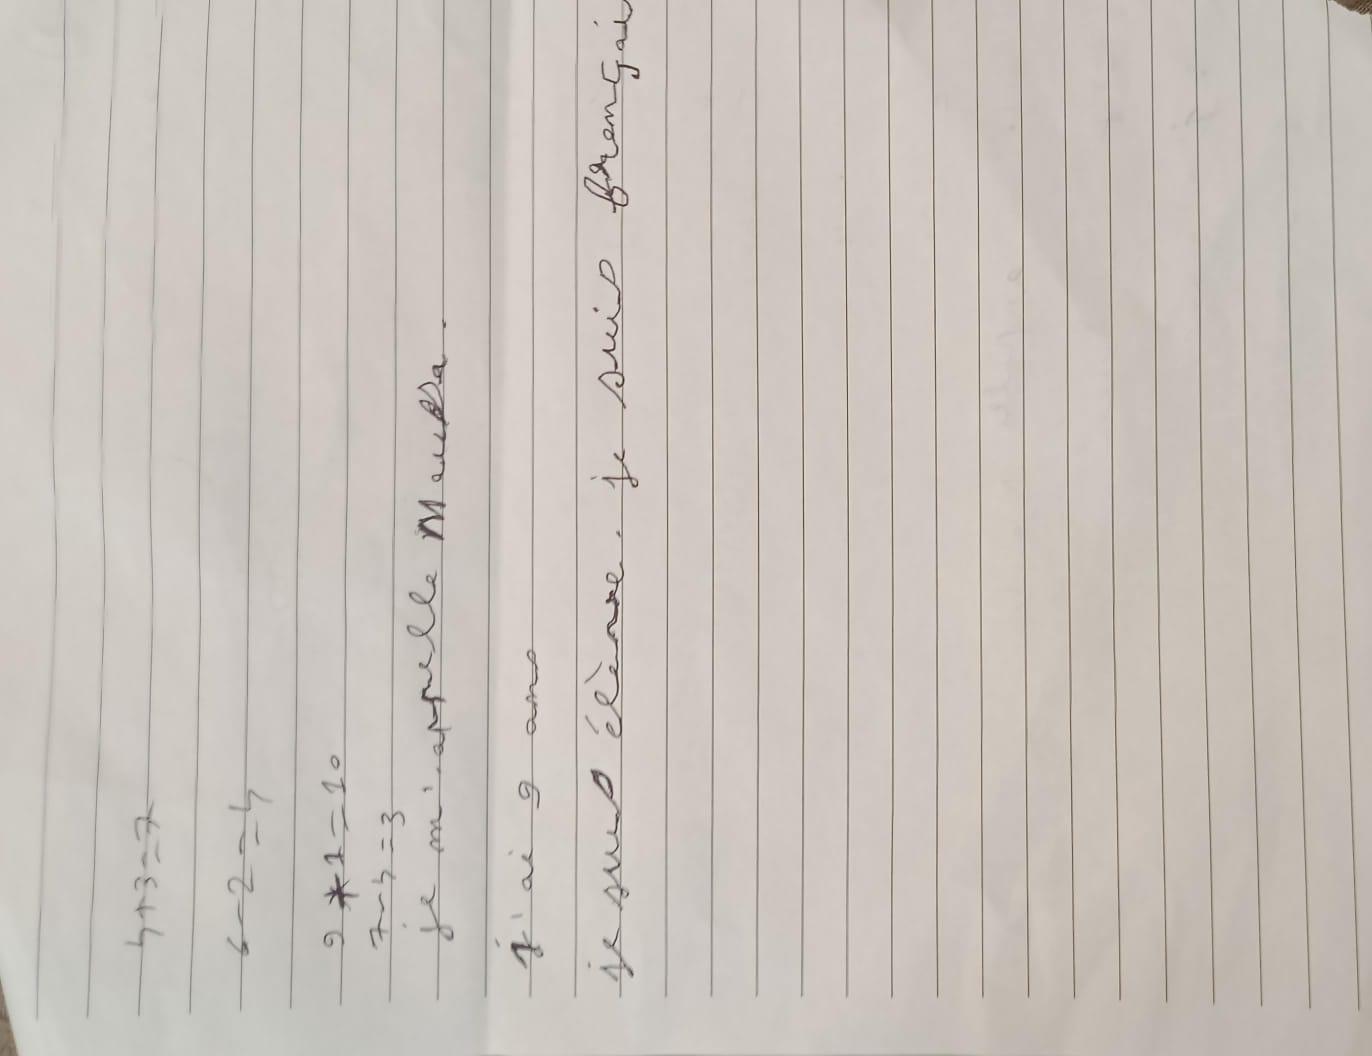 4+3=7
6-2=4
9*1=10
7-4=3
je m'appelle Moussa.
j'ai 9 ans
je suis élève. je suis françai